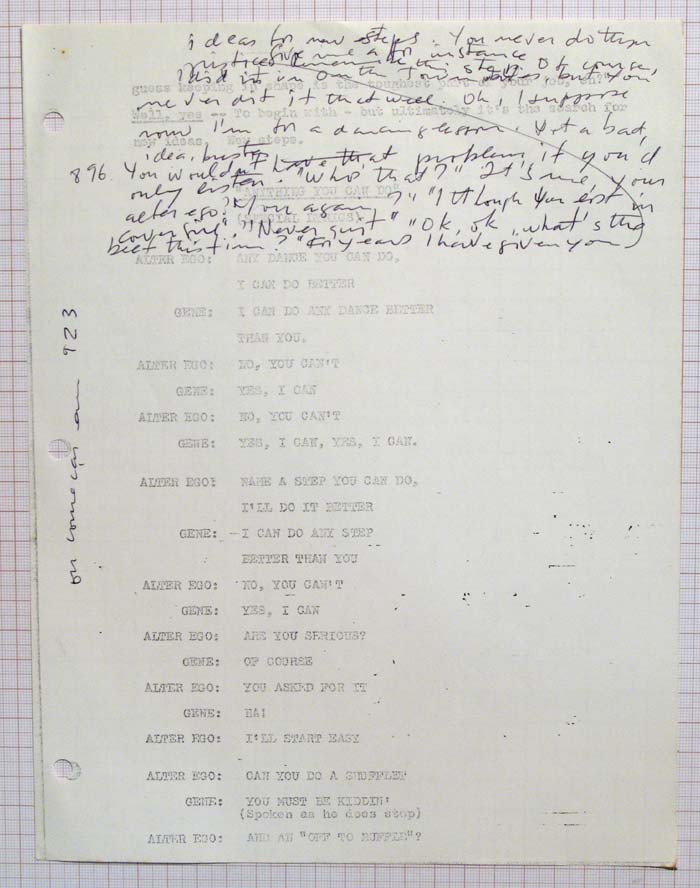 ideas for new steps. You never do them
justice. Give me a for instance
this step. Of course,
I did it in On the Town but you
guess keeping in shape is the toughest part of your job, eh?
never did it that well. Oh, I suppose
Well, yes -- To begin with - but ultimately it's the search for
now I'm for a dancing lesson. Not a bad
new ideas. New steps.
idea, buster
896. You wouldn't have that problem if you'd
only listen. "Who's that?" "It's me, your
"ANYTHING YOU CAN DO"
alter ego." "You again?" "I though you exist in
(SPECIAL LYRICS)
Cover Girl". "Never quit" "Ok, ok, what's the
beef this time?" "For years I have given you
ALTER EGO: ANY DANCE YOU CAN DO,
I CAN DO BETTER
GENE: I CAN DO ANY DANCE BETTER
THAN YOU.
ALTER EGO: NO, YOU CAN'T
GENE: YES, I CAN
ALTER EGO: NO, YOU CAN'T
GENE: YES, I CAN, YES, I CAN.
ALTER EGO: NAME A STEP YOU CAN DO,
I'LL DO IT BETTER
GENE: I CAN DO ANY STEP
BETTER THAN YOU
ALTER EGO: NO, YOU CAN'T
GENE: YES, I CAN
ALTER EGO: ARE YOU SERIOUS?
GENE: OF COURSE
ALTER EGO: YOU ASKED FOR IT
GENE: HA!
ALTER EGO: I'LL START EASY
ALTER EGO: CAN YOU DO A SHUFFLE?
GENE: YOU MUST BE KIDDIN'
(Spoken as he does step)
ALTER EGO: AND AN "OFF TO BUFFLE"?
on 923